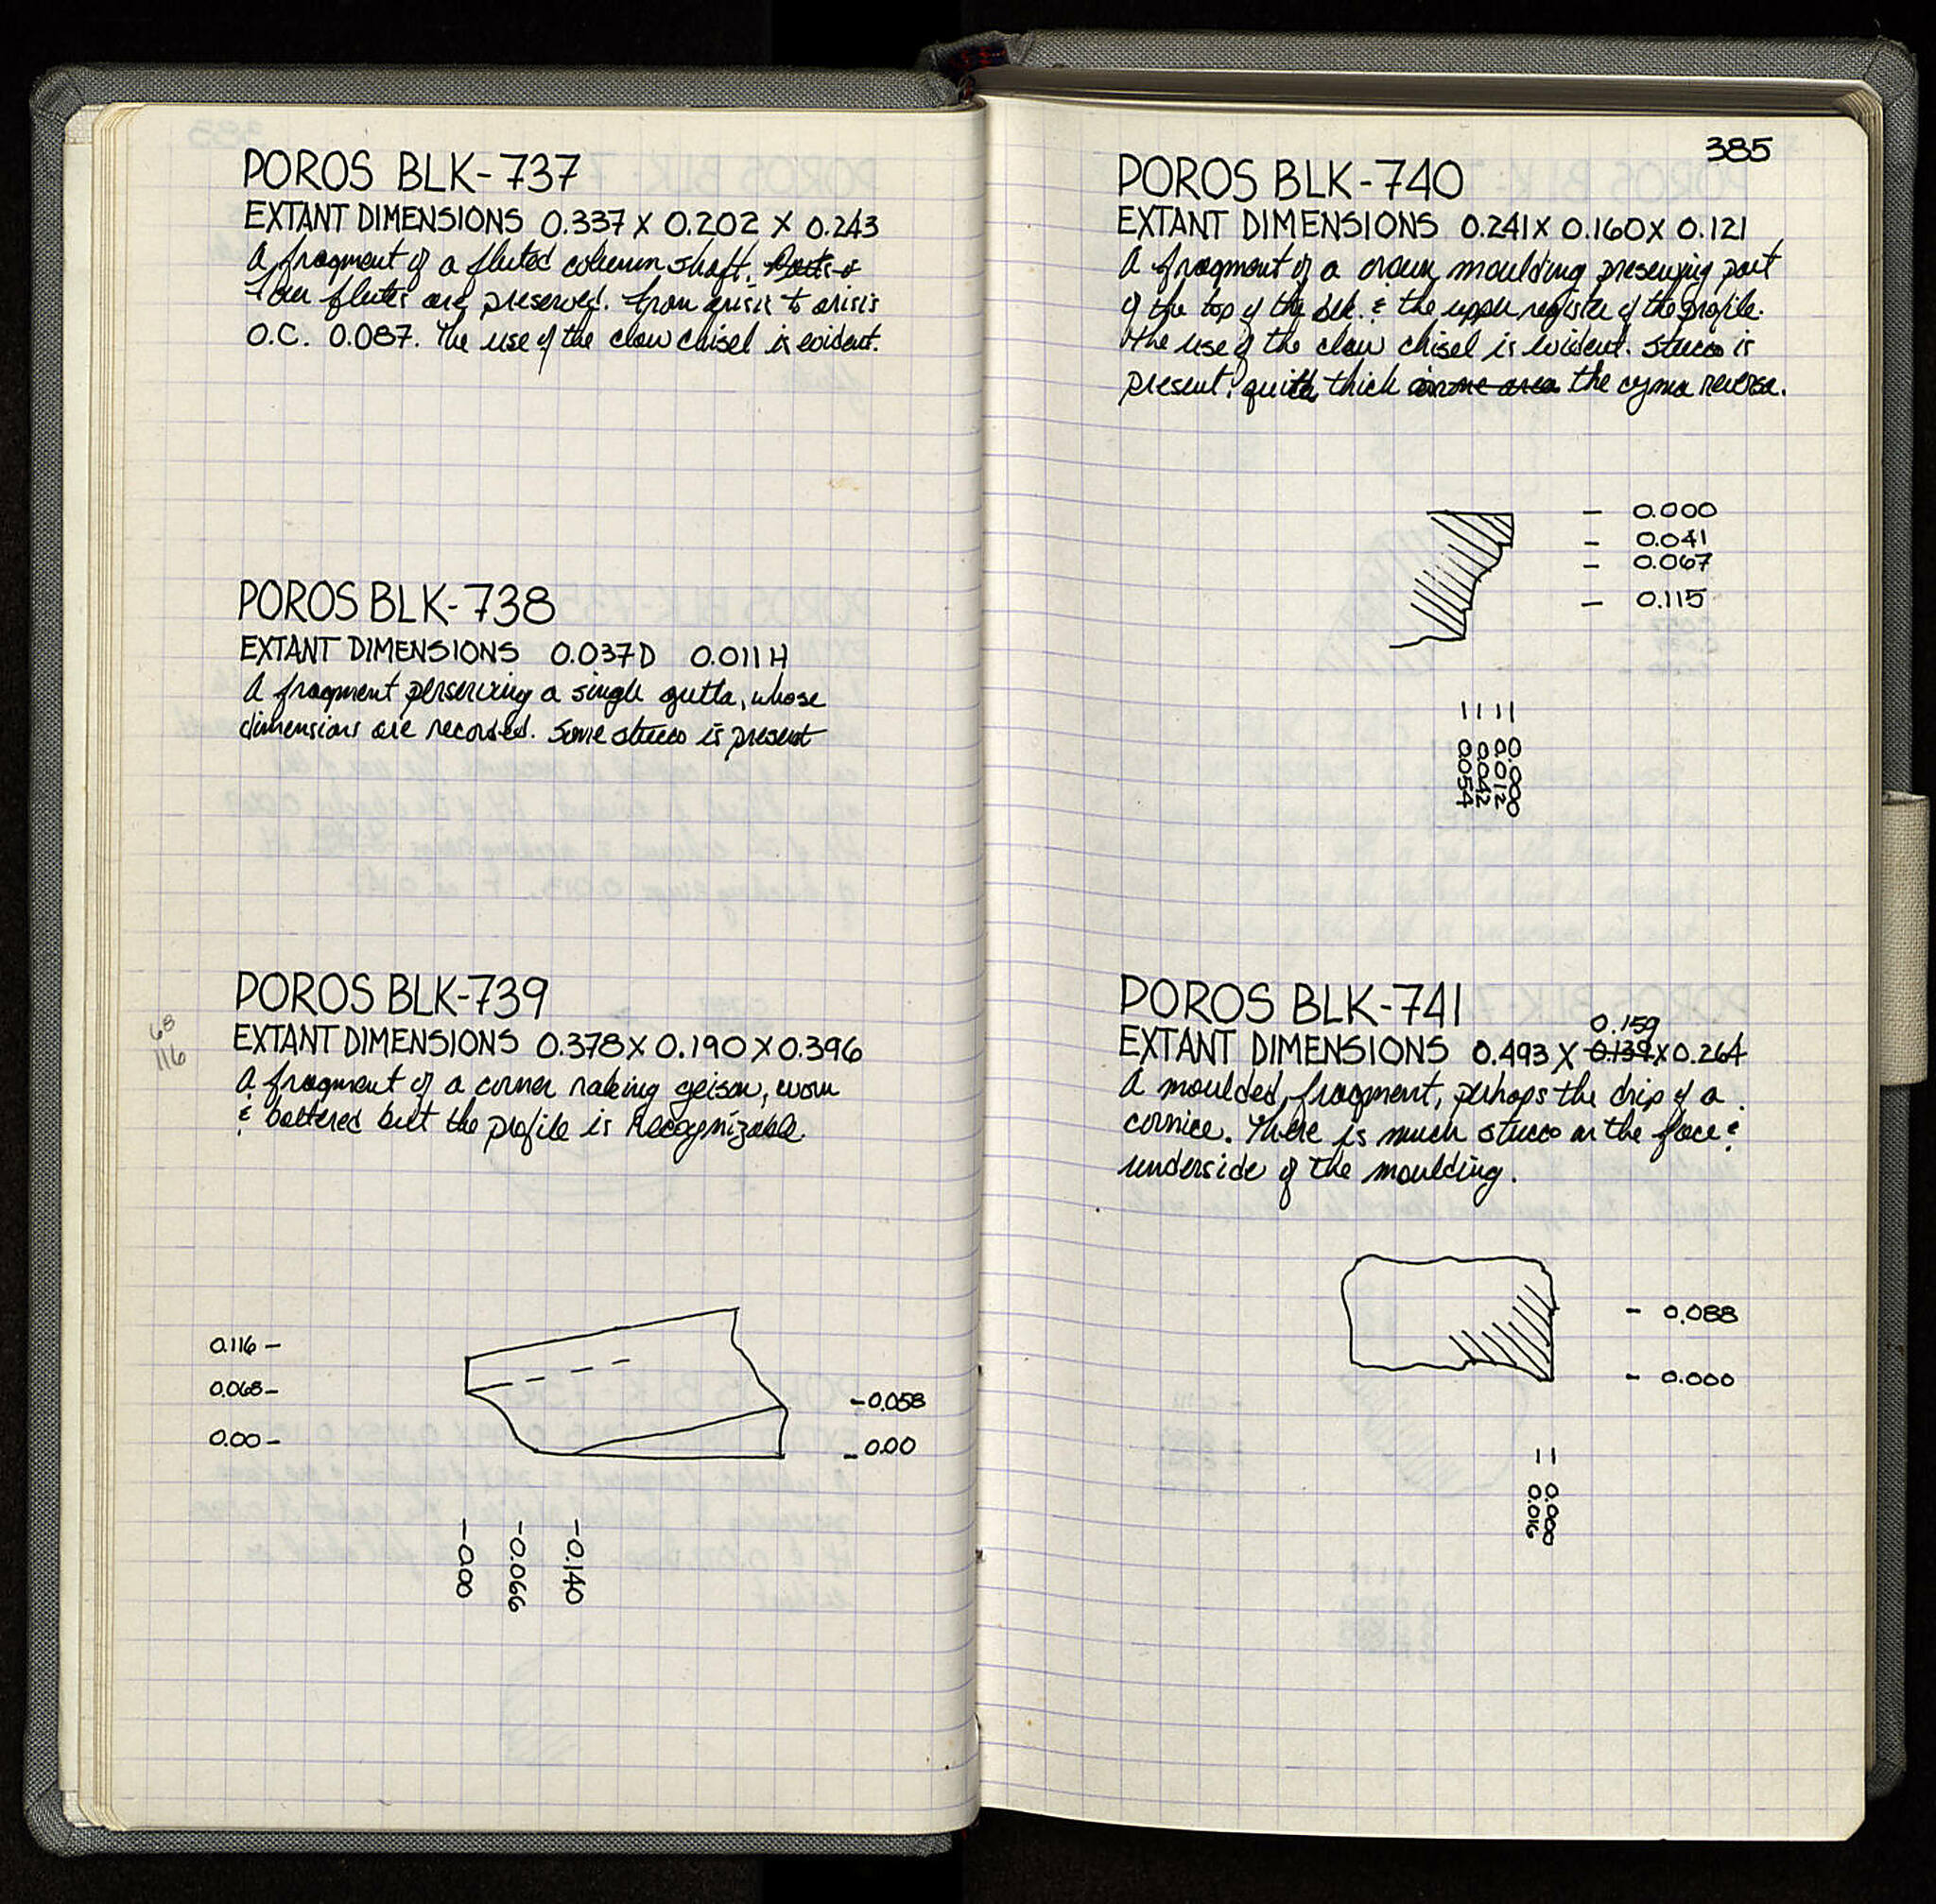 POROS BLK-737
EXTANT DIMENSIONS 0.337 X 0.202 X 0.243
A fragment of a fluted column shaft. Parts of
four flutes are preserved. From arisis to arisis
O.C. 0.087. The use of the claw chisel is evident.
POROS BLK-738
EXTANT DIMENSIONS 0.037D 0.011H
A fragment perserving a single gutta, whose
dimensions are recorded. Some stucco is present
POROS BLK-739
68
116
EXTANT DIMENSIONS 0.378 X 0.190 X 0.396
A fragment of a corner raking geison, worn
& battered but the profile is recognizable
0.116 -
0.068 -
0.00 -
- 0.058
- 0.00
- 0.00
- 0.066
- 0.140
385
POROS BLK-740
EXTANT DIMENSIONS 0.241 X 0.160 X 0.121
A fragment of a crown moulding preserving part
of the top of the blk. & the upper register of the profile.
The use of the claw chisel is evident. Stucco is
present, quite thick in one area the cyma reversa.
- 0.000
- 0.041
- 0.067
- 0.115
0.000
0.012
0.042
0.054
POROS BLK-741
0.159
EXTANT DIMENSIONS 0.493 X 0.139 X 0.264
A moulded fragment, perhaps the drip of a
cornice. There is much stucco on the face &
underside of the moulding.
- 0.088
- 0.000
0.000
0.016